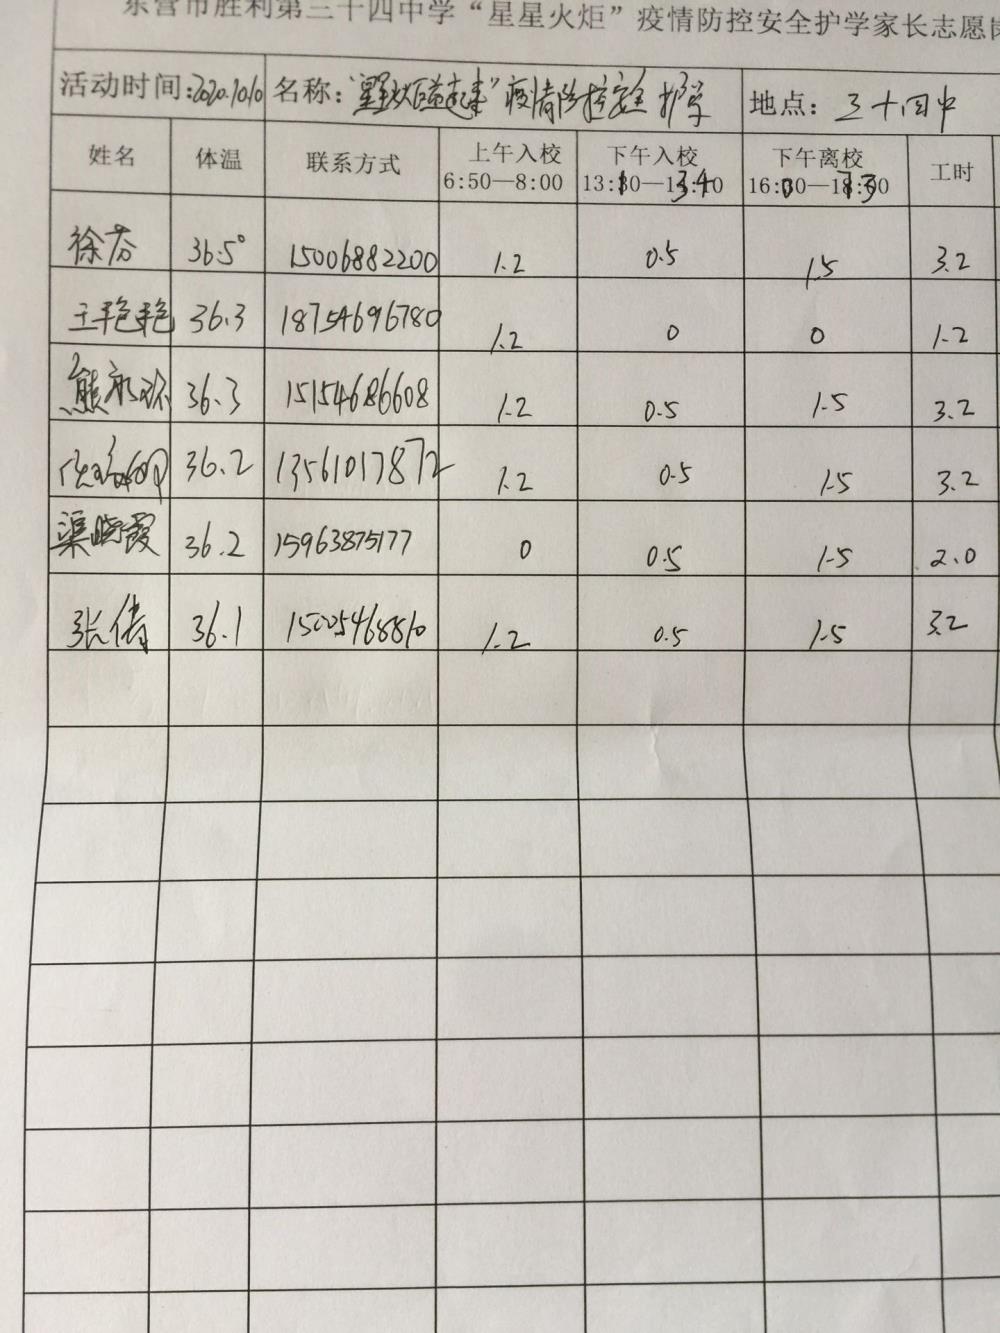 东营市胜利第三十四中学“星星火炬”疫情防控安全护学家长志愿岗
活动时间:2020.10.10 名称:“星星火炬 ”疫情防控安全护学 地点: 三十四中
姓名 体温 联系方式 上午入校 下午入校 下午离校 工时
6:50—8:00 13:10—13:40 16:00—17:30
徐芬 36.5° 15006882200 1.2 0.5 1.5 3.2
王艳艳 36.3 18754696780 1.2 0 0 1.2
熊 36.3 15154686608 1.2 0.5 1.5 3.2
36.2 13561017872 1.2 0.5 1.5 3.2
渠晓霞 36.2 15963875177 0 0.5 1.5 2.0
张倩 36.1 15005468810 1.2 0.5 1.5 3.2